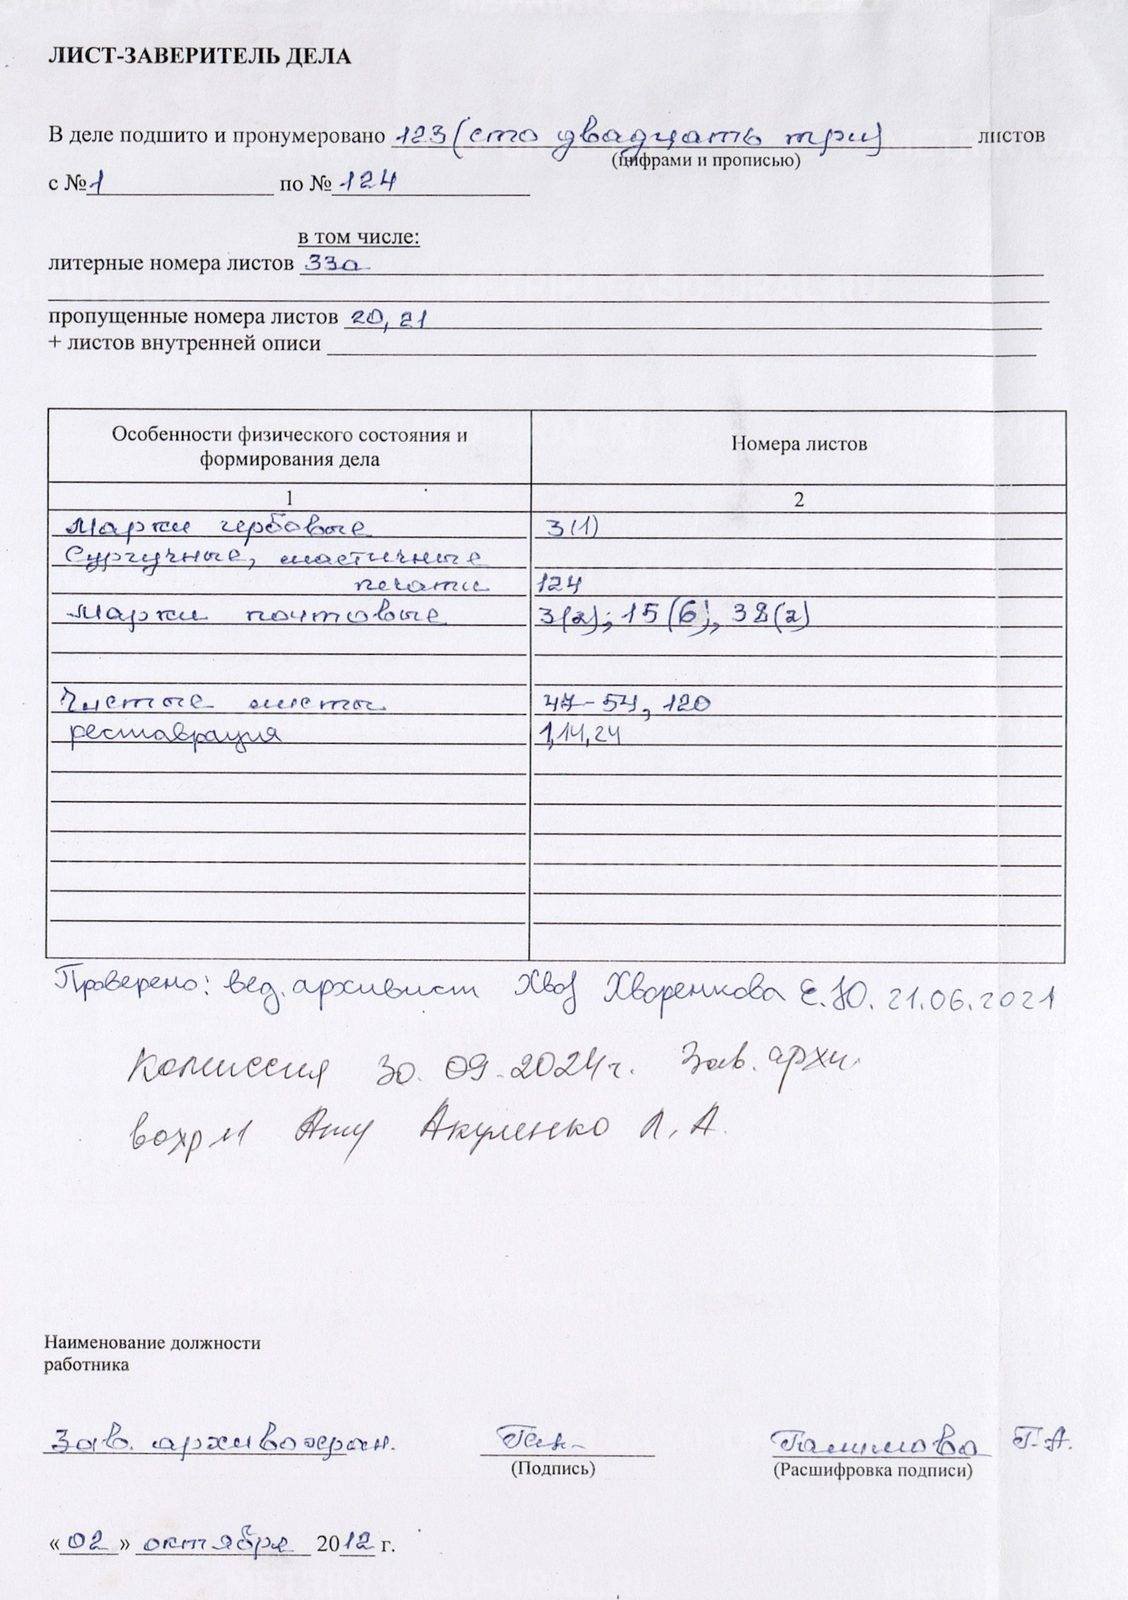 ЛИСТ-ЗАВЕРИТЕЛЬ ДЕЛА
В деле подшито и пронумеровано 123 (сто двадцать три) листов
(цифрами и прописью)
с № 1 по № 124
в том числе:
литерные номера листов 33а
пропущенные номера листов 20, 21
+ листов внутренней описи
Особенности физического состояния и формирования дела
Номера листов
1 2
Марки гербовые 3(1)
Сургучные, мастичные
печати 124
Марки почтовые 3(2); 15(6), 38(2)
Чистые листы 47-54, 120
реставрация 1,14,24
Проверено: вед. архивист Хворенкова Е.Ю. 21.06.2021
Комиссия 30.09.2024г. Зав. архи-
вохр Акуленко Л.А.
Наименование должности
работника
Зав. архивохран. Галимова Г.А.
(Подпись) (Расшифровка подписи)
«02» октября 2012 г.